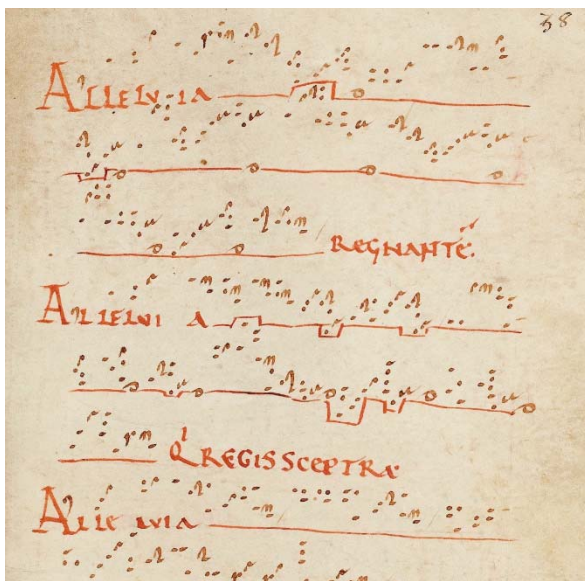 38
ALLELVIA
REGNANTE
ALLELVI A
Q REGIS SCEPTRA
ALLELVIA